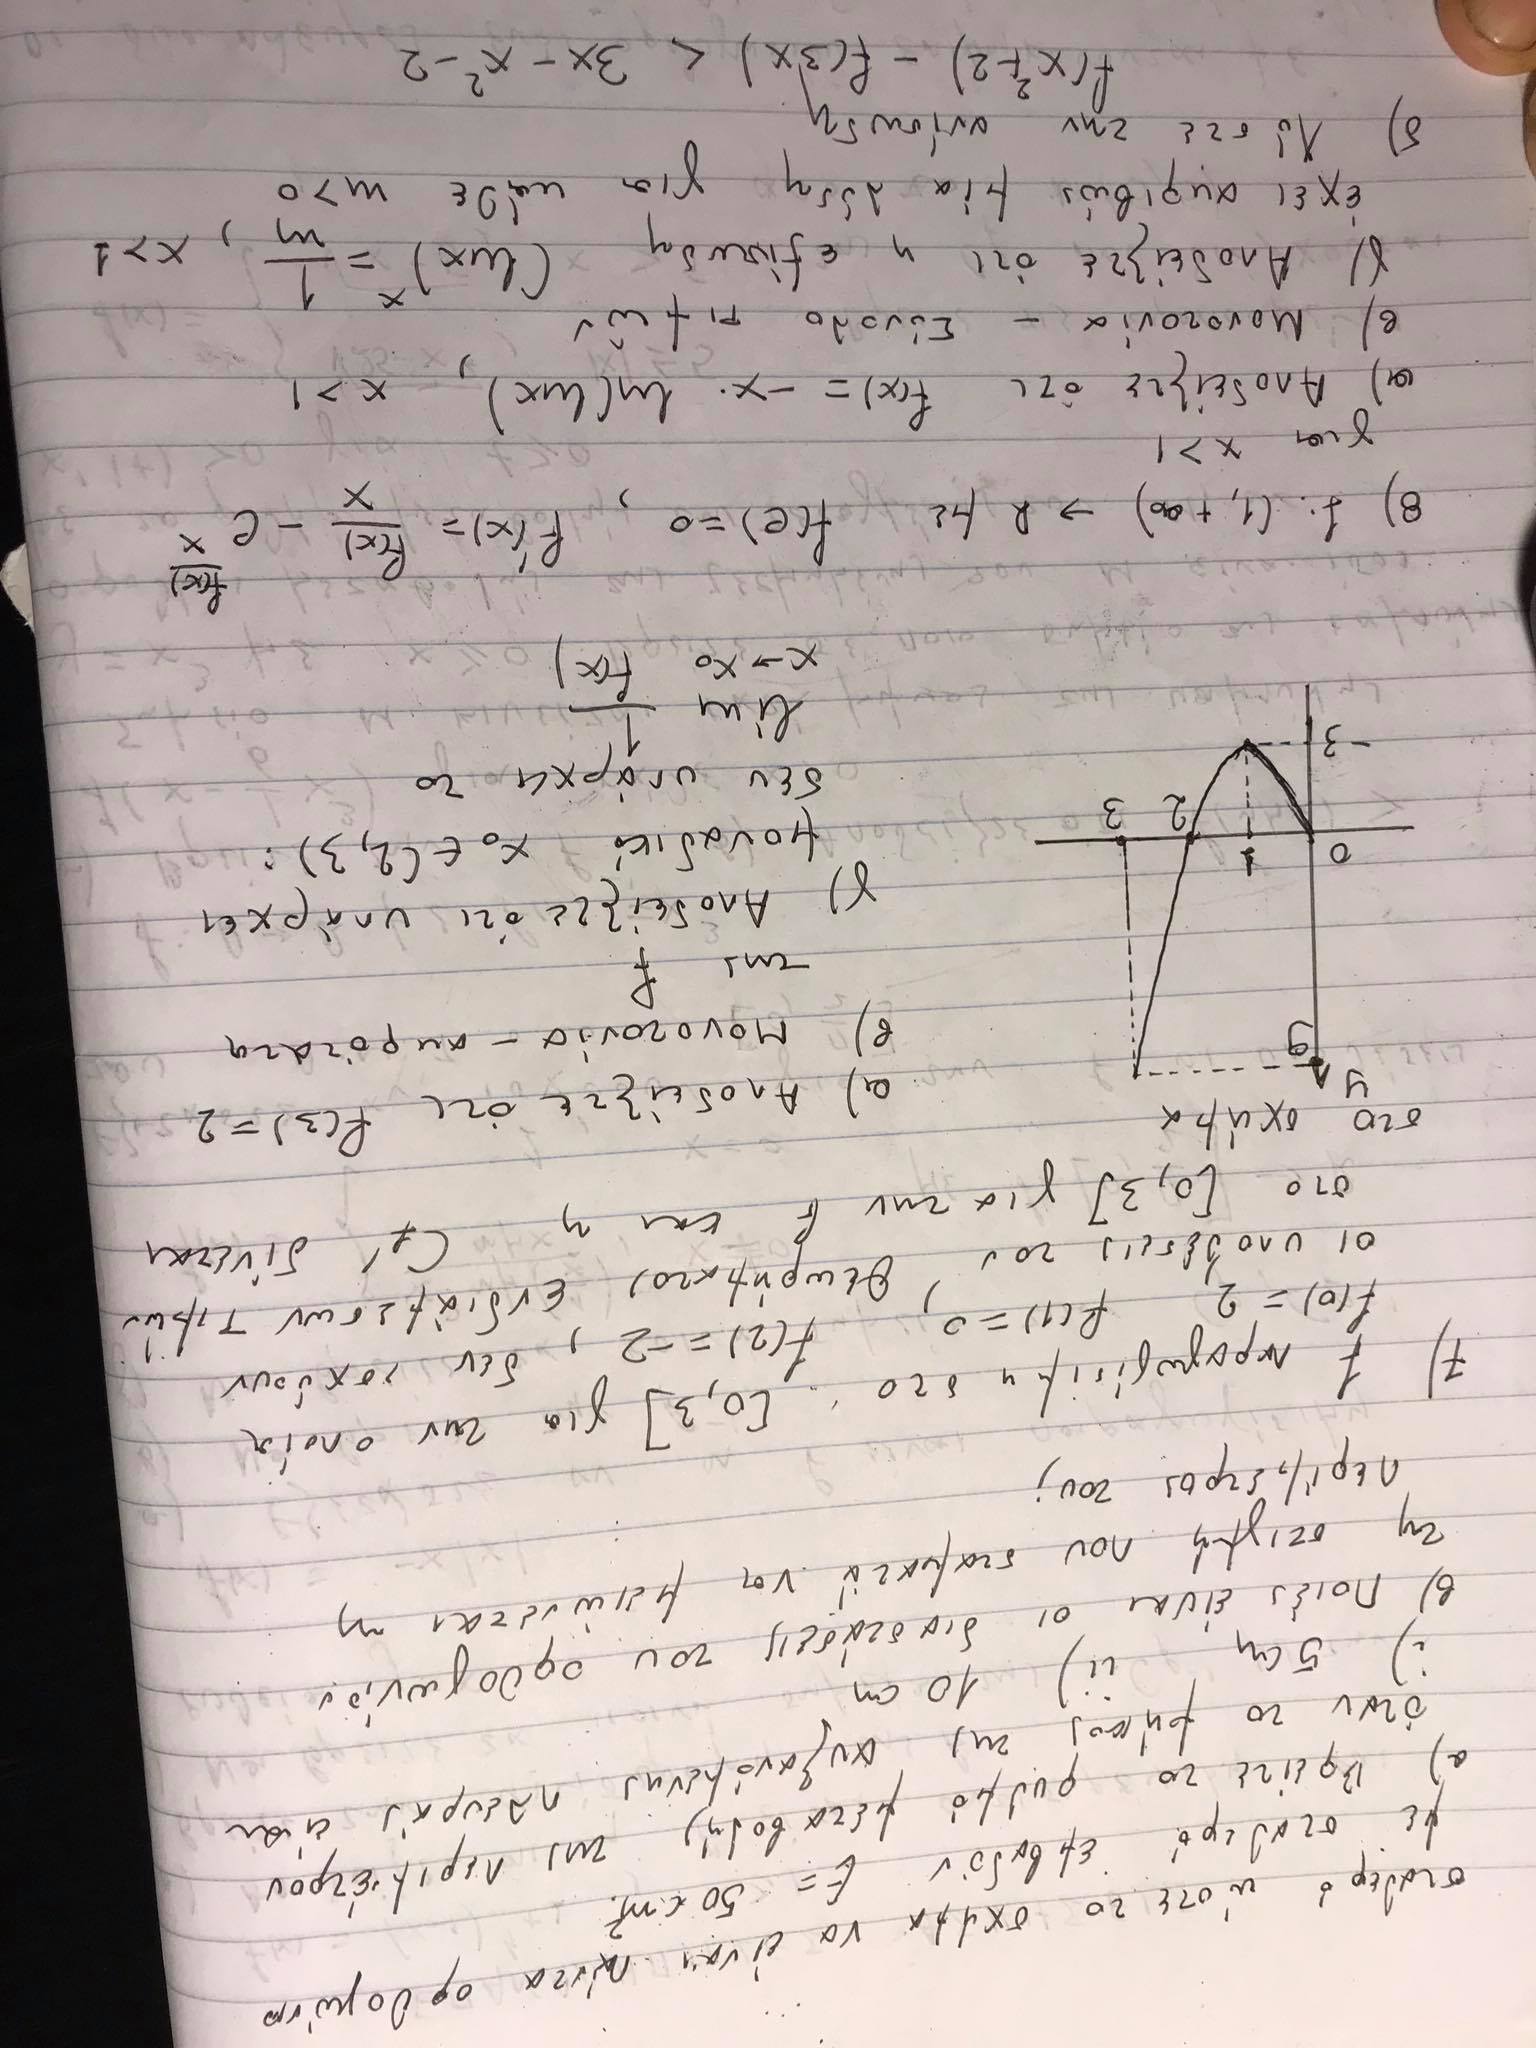 σταθερό ώστε το σχήμα να είναι πάντα ορθογώνιο
με σταθερό εμβαδόν E = 50cm²
α) Βρείτε το ρυθμό μεταβολής της περιμέτρου
όταν το μήκος της αυξανόμενης πλευράς είναι
i) 5cm ii) 10 cm
β) Ποιές είναι οι διαστάσεις του ορθογωνίου
τη στιγμή που σταματά να μειώνεται η
περίμετρος του;
7) f παραγωγίσιμη στο [0,3] για την οποία
f(0) = 2 f(1) = 0, f(2) = -2, δεν ισχύουν
οι υποθέσεις του θεωρήματος Ενδιαμέσων Τιμών
στο [0,3] για την f και η Cf' δίνεται
στο σχήμα
y
9
0 1 2 3
-3
α) Αποδείξτε ότι f(3) = 2
β) Μονοτονία - ακρότατα
της f
γ) Αποδείξτε ότι υπάρχει
μοναδικό x₀ ∈ (2,3) :
δεν υπάρχει το
lim 1/f(x)
x→x₀
8) f: (1,+∞) → R με f(e) = 0, f'(x) = f(x)/x - e^(f(x)/x)
για x>1
α) Αποδείξτε ότι f(x) = -x·ln(lnx), x>1
β) Μονοτονία - Σύνολο τιμών
γ) Αποδείξτε ότι η εξίσωση (lnx)^x = 1/m, x>1
έχει ακριβώς μία λύση για κάθε m>0
δ) Λύστε την ανίσωση
f(x²+2) - f(3x) < 3x - x² - 2